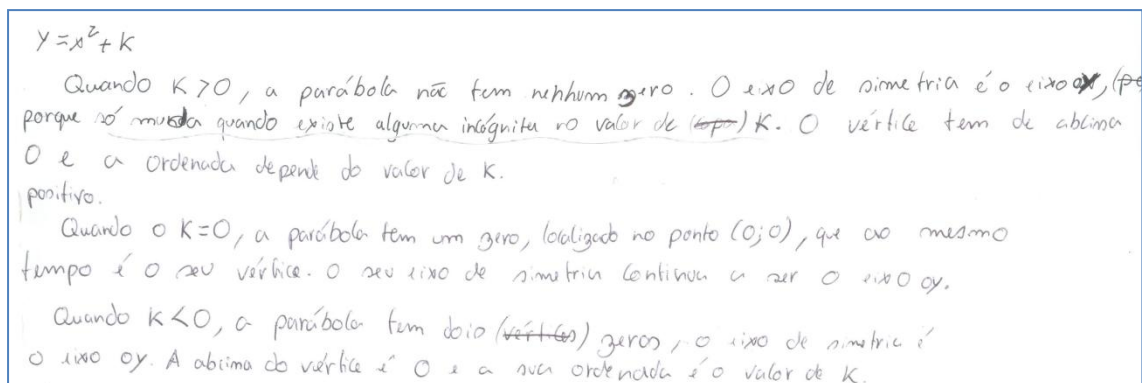 y = x² + K
Quando K > 0, a parábola não tem nenhum zero. O eixo de simetria é o eixo oy,
porque só muda quando existe alguma incógnita no valor de K. O vértice tem de abcissa
0 e a ordenada depende do valor de K.
positivo.
Quando o K=0, a parábola tem um zero, localizado no ponto (0;0), que ao mesmo
tempo é o seu vértice. O seu eixo de simetria continua a ser o eixo oy.
Quando K<0, a parábola tem dois (vértices) zeros, o eixo de simetria é
o eixo oy. A abcissa do vértice é 0 e a sua ordenada é o valor de K.